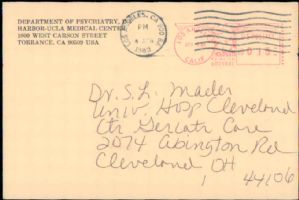 DEPARTMENT OF PSYCHIATRY,
HARBOR-UCLA MEDICAL CENTER
1000 WEST CARSON STREET
TORRANCE, CA 90509 USA
LOS ANGELES, CA 900
PM
1983
CALIF
Dr. S.L. Mader
Univ. Hosp Cleveland
Ctr Geriatr Care
2074 Abington Rd
Cleveland, OH
44106